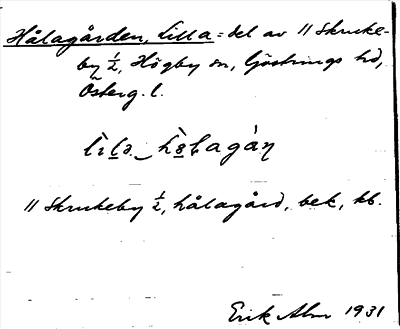 Hålagården, Lilla = del av 11 Skruke-
by ½, Högby sn, Göstrings hd,
Österg. l.
11 Skrukeby ½, hålagård, bek, kb.
Erik Alm 1931